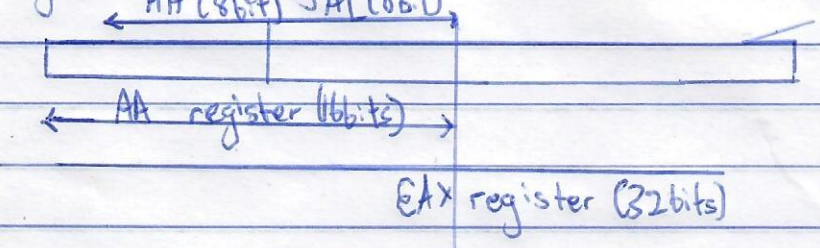 AH (8bit) AL (8bit)
AA register (16bits)
EAX register (32bits)